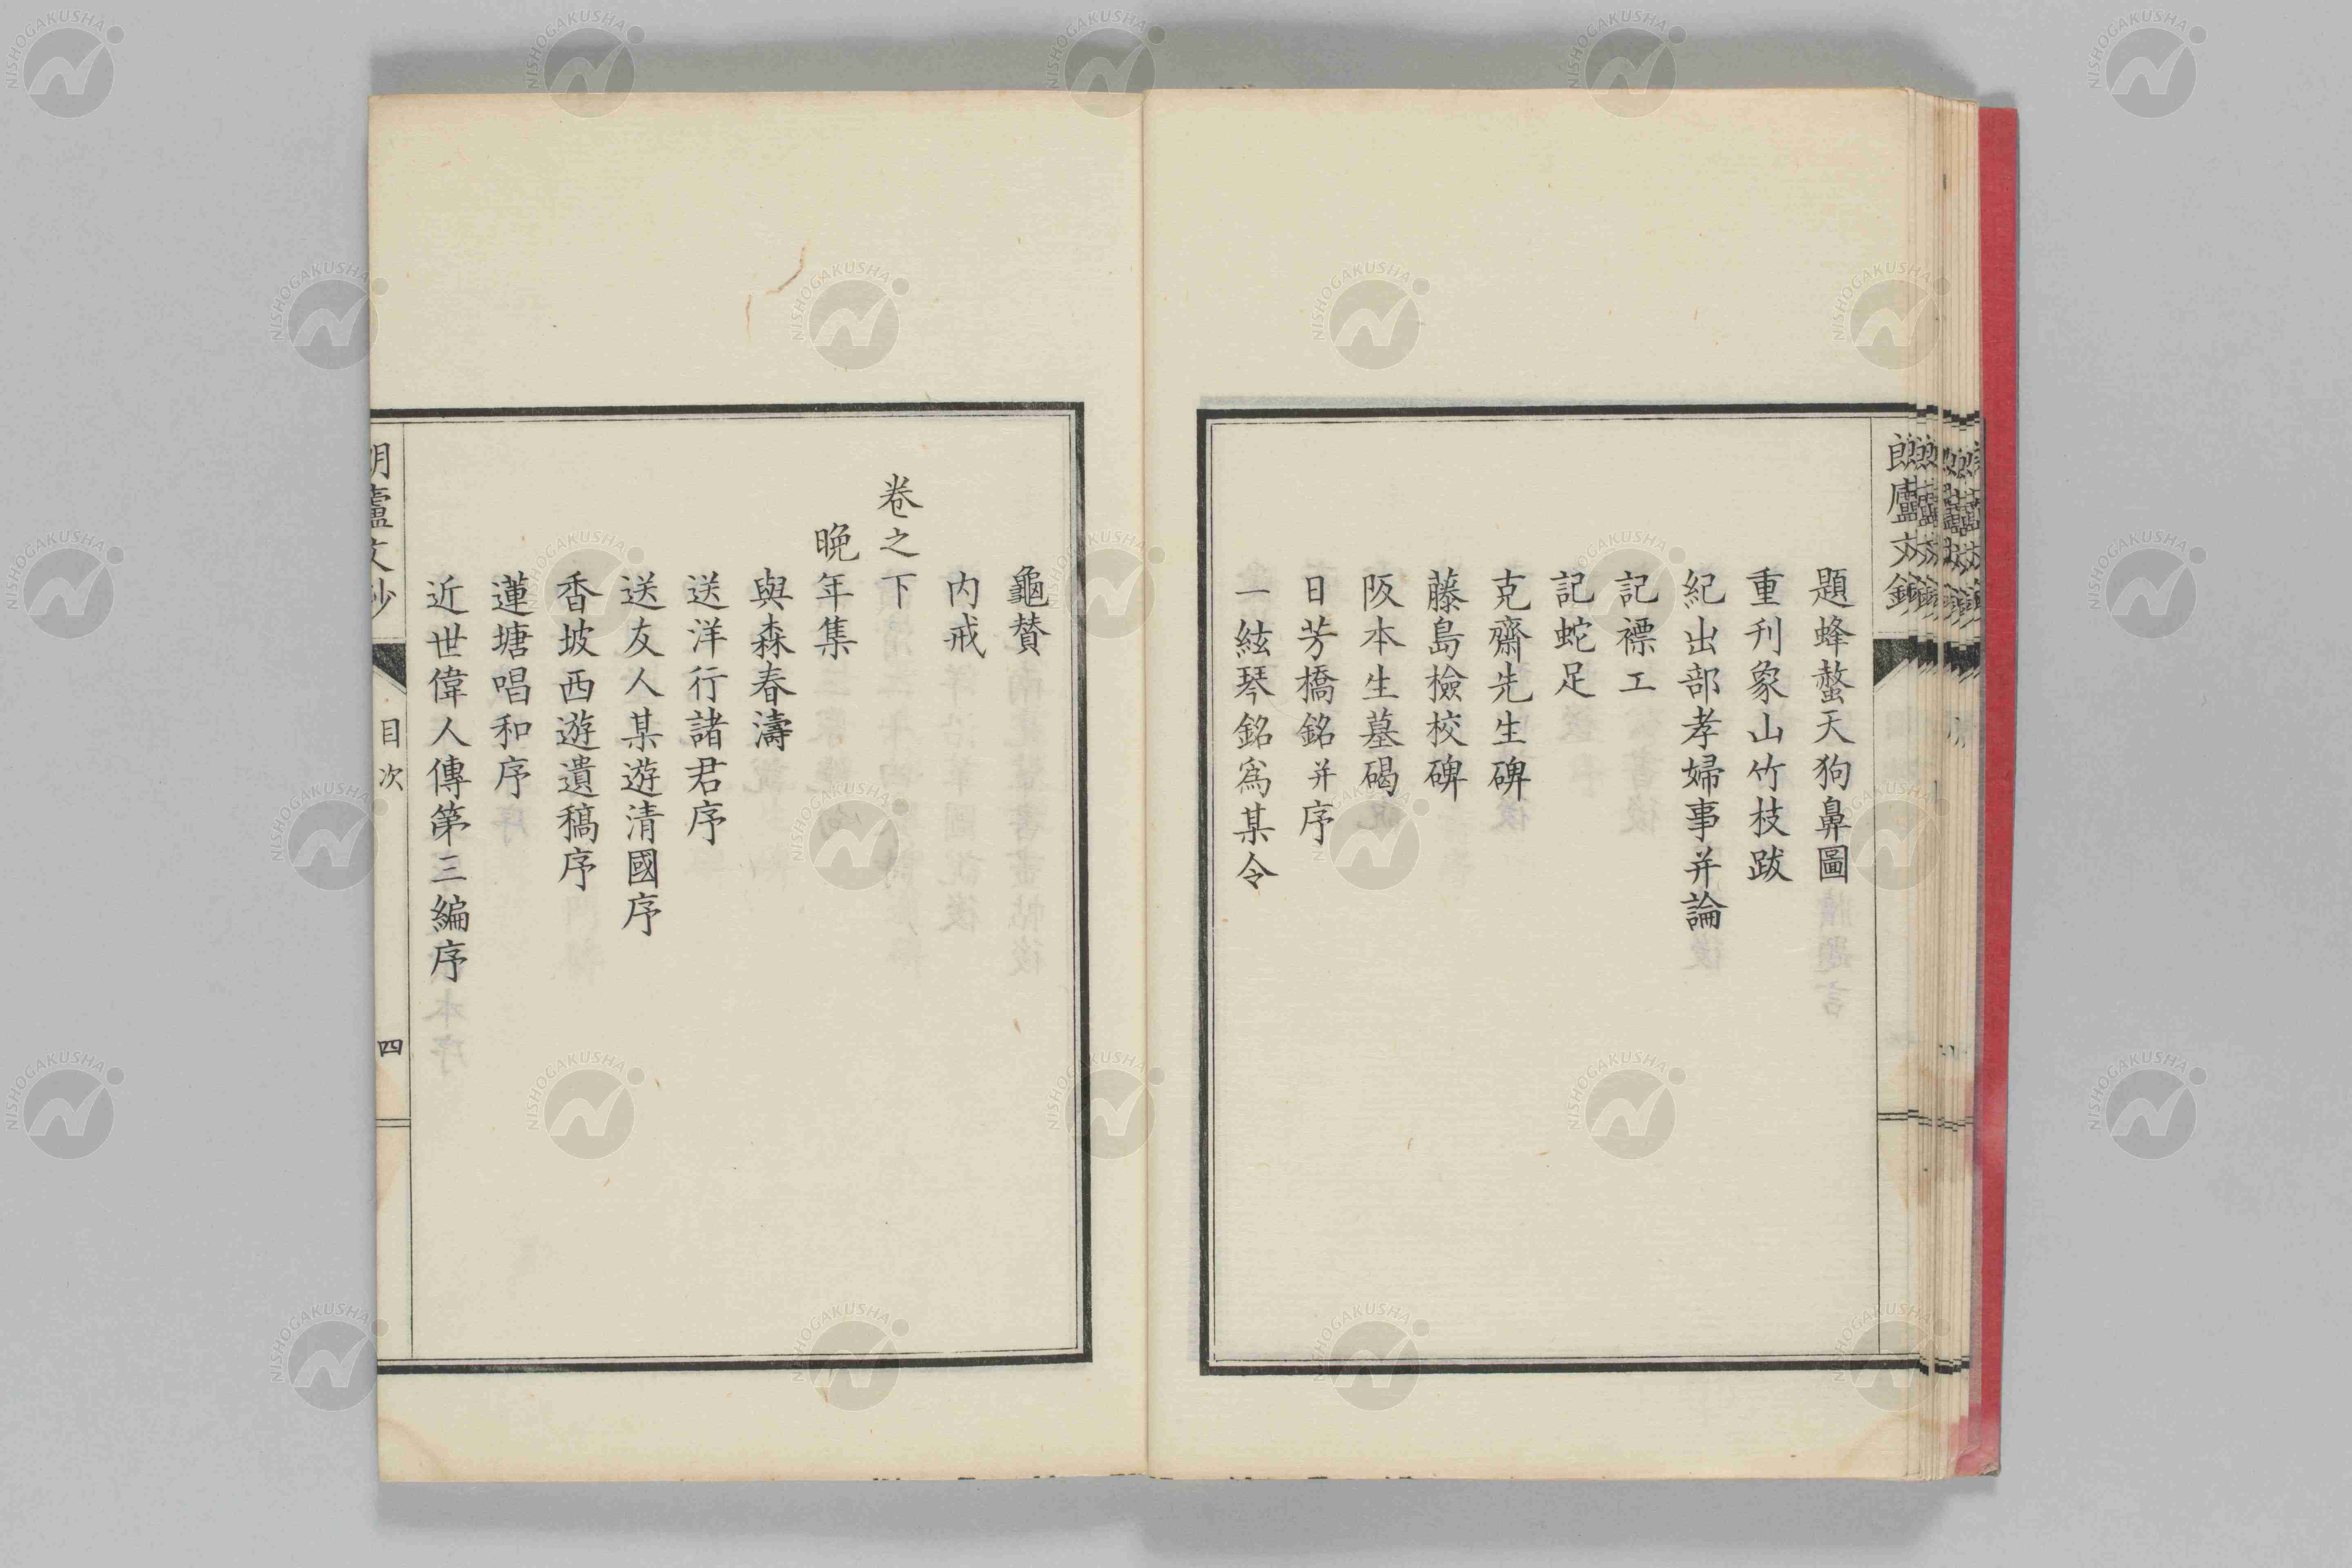 題蜂螫天狗鼻圖
重刊象山竹枝跋
紀出部孝婦事并論
記褾工
記蛇足
克齋先生碑
藤島檢校碑
阪本生墓碣
日芳橋銘并序
一絃琴銘爲某令
龜贊
内戒
卷之下
晩年集
與森春濤
送洋行諸君序
送友人某遊清國序
香坡西遊遺稿序
蓮塘唱和序
近世偉人傳第三編序
朗廬文鈔
目次
四
NISHOGAKUSHA